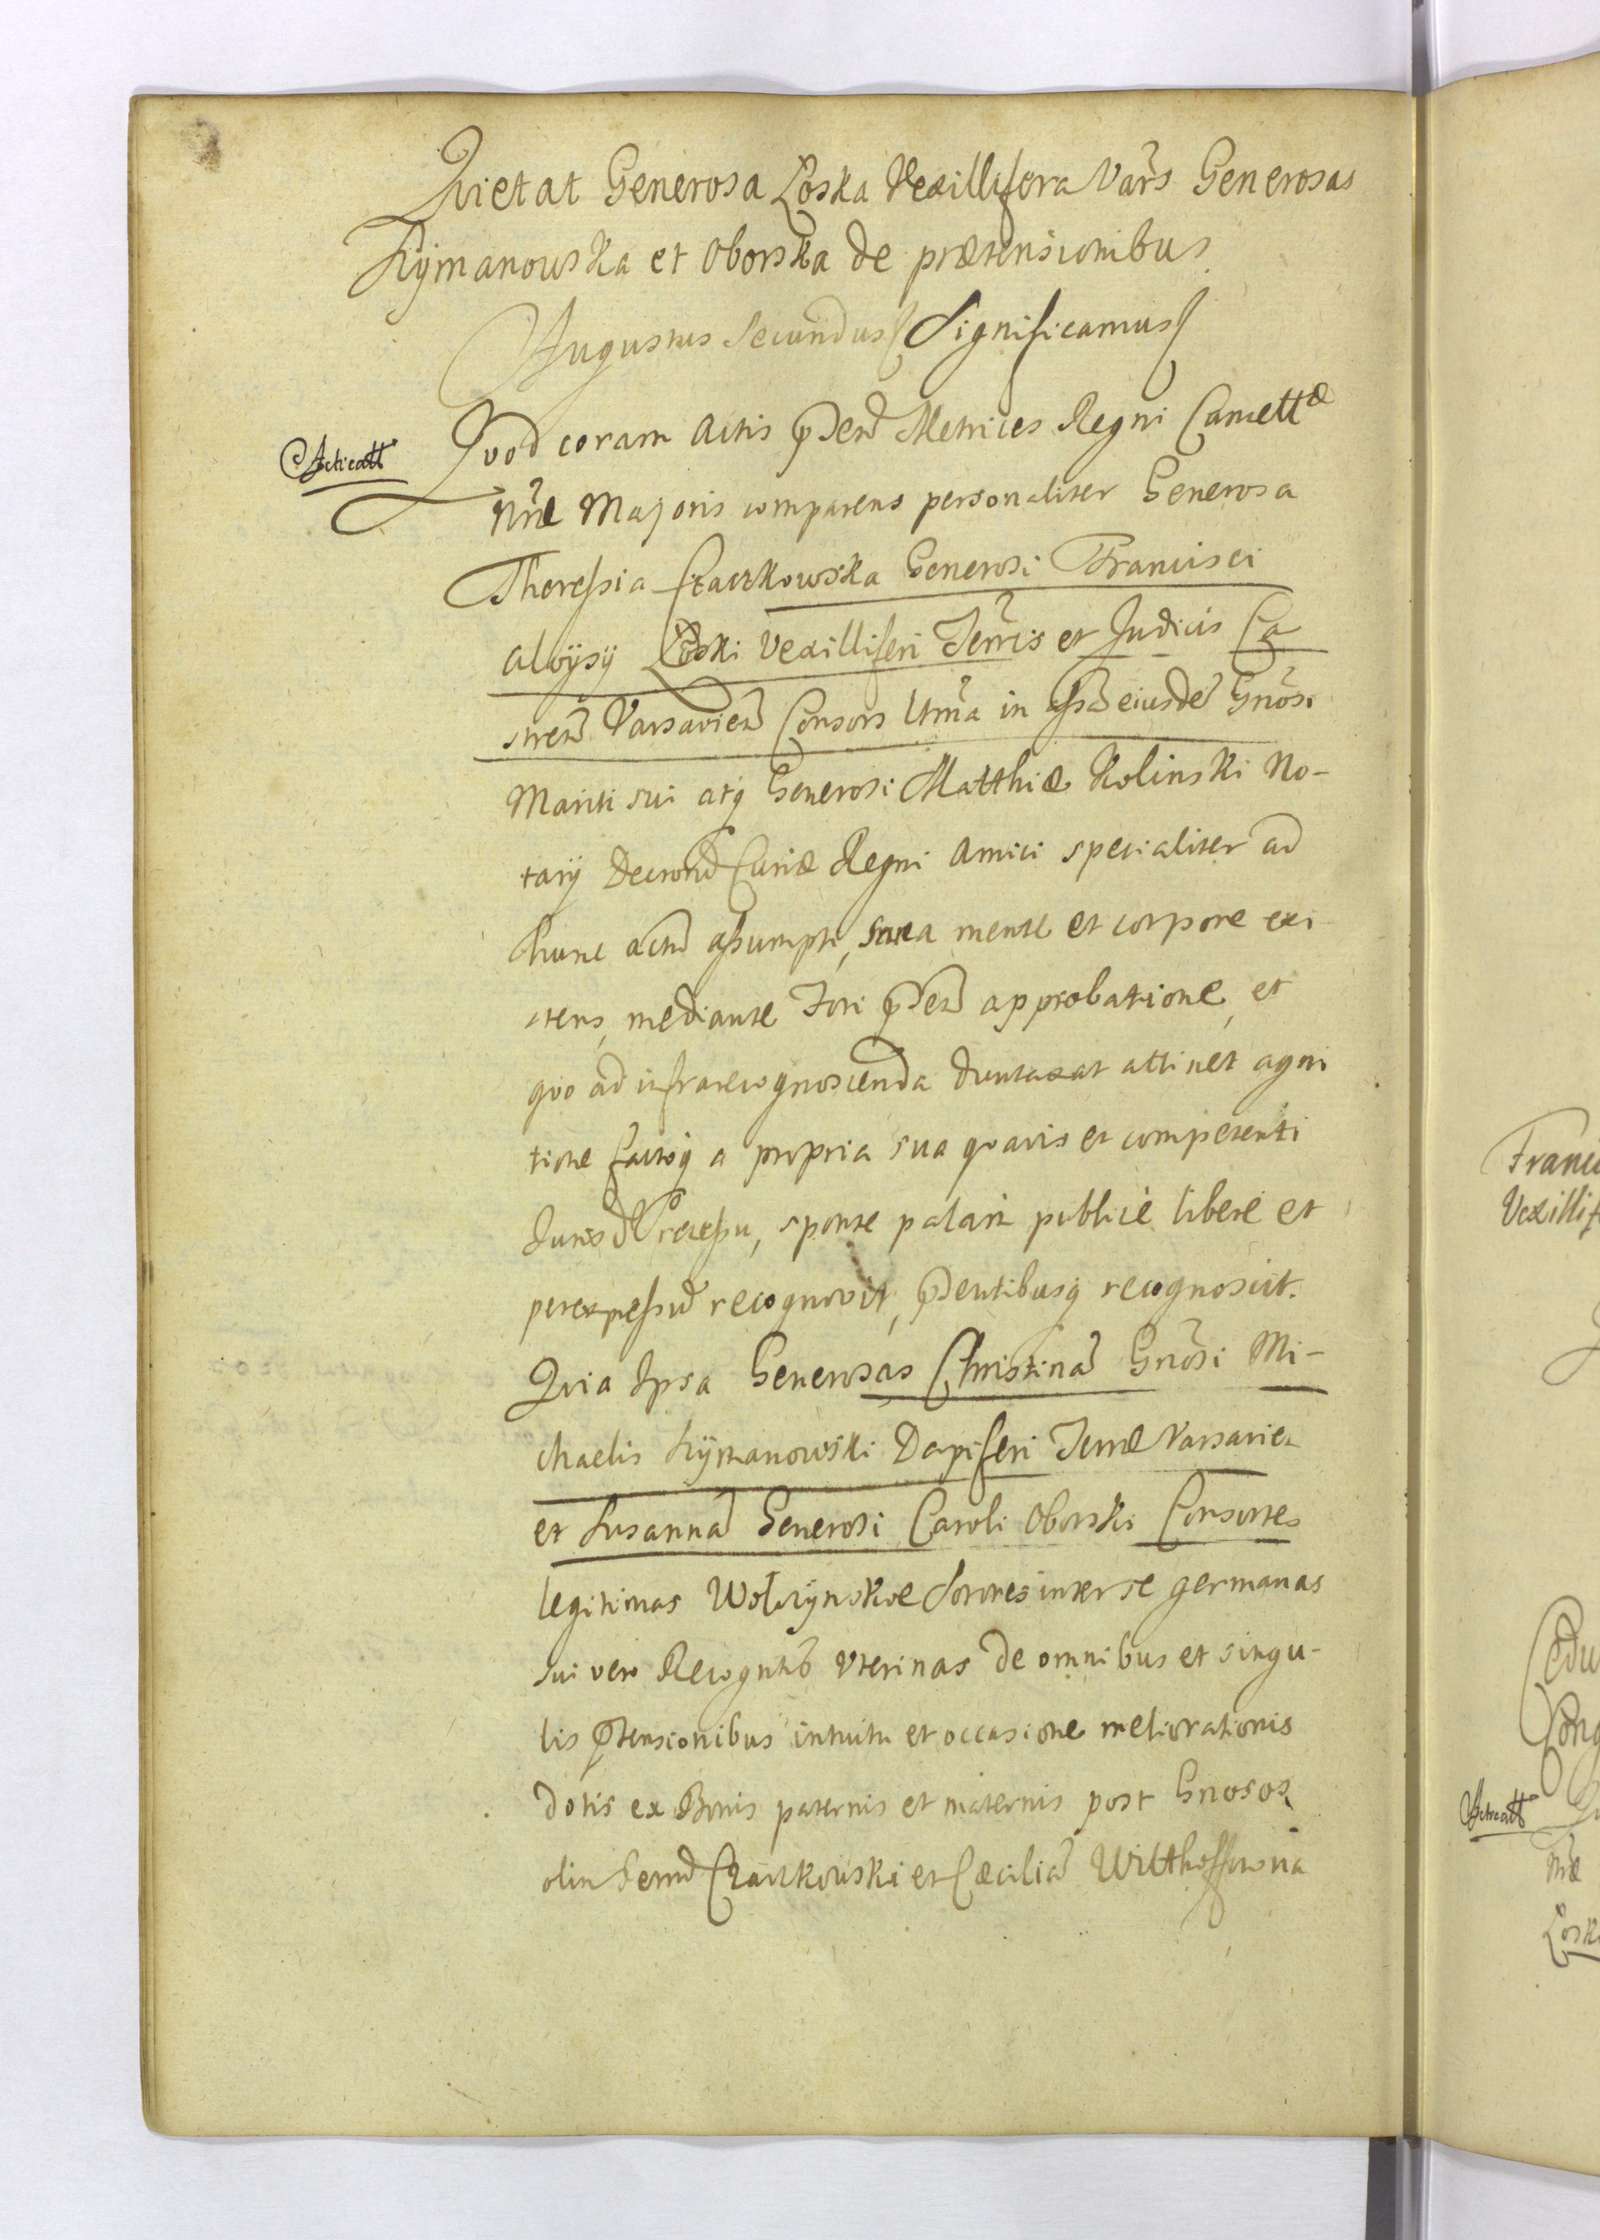 Qvietat Generosa Łoska Vexillifera Vars Generosas
Rÿmanowska et Oborska de prætensionibus
Augustus Secundus Significamus
Qvod coram Actis pñtibus Metrices Regni Cancellæ
Acticatt
Nræ Majoris comparens personaliter Generosa
Theressia Czaczkowska Generosi Francisci
Aloÿsÿ Łoski Vexilliferi Terris et Judicis Ca
stren Varsavien Consors Utma in assa eiusde Gnosi
Mariti sui atq Generosi Matthiæ Kolinski No-
tarÿ Decrorū Curiæ Regni Amici specialiter ad
hunc actū assumpti, sana mente et corpore exi
stens, mediante Fori pñti approbatione, et
qvo ad infrarecognoscenda duntaxat attinet agni
tione factoq a propria sua qvavis et competenti
Jurisd recessu, sponte palam publice libere et
perexpressū recognovit, pñtibusq recognoscit.
Qvia Ipsa Generosas Christinā Gnosi Mi-
chaelis Rÿmanowski Dapiferi Terræ Varsavien
et Susannā Generosi Caroli Oborski Consortes
legitimas Wołczÿnskie Sorores inter se germanas
sui vero Recogntis Uterinas de omnibus et singu-
lis ptensionibus intuitu et occasione meliorationis
dotis ex Bonis paternis et maternis post Gnosos
olim Czaczkowski et Cæciliā Witthoffowna
Franci
Vexillif
Acticatt
Nræ
Łoski